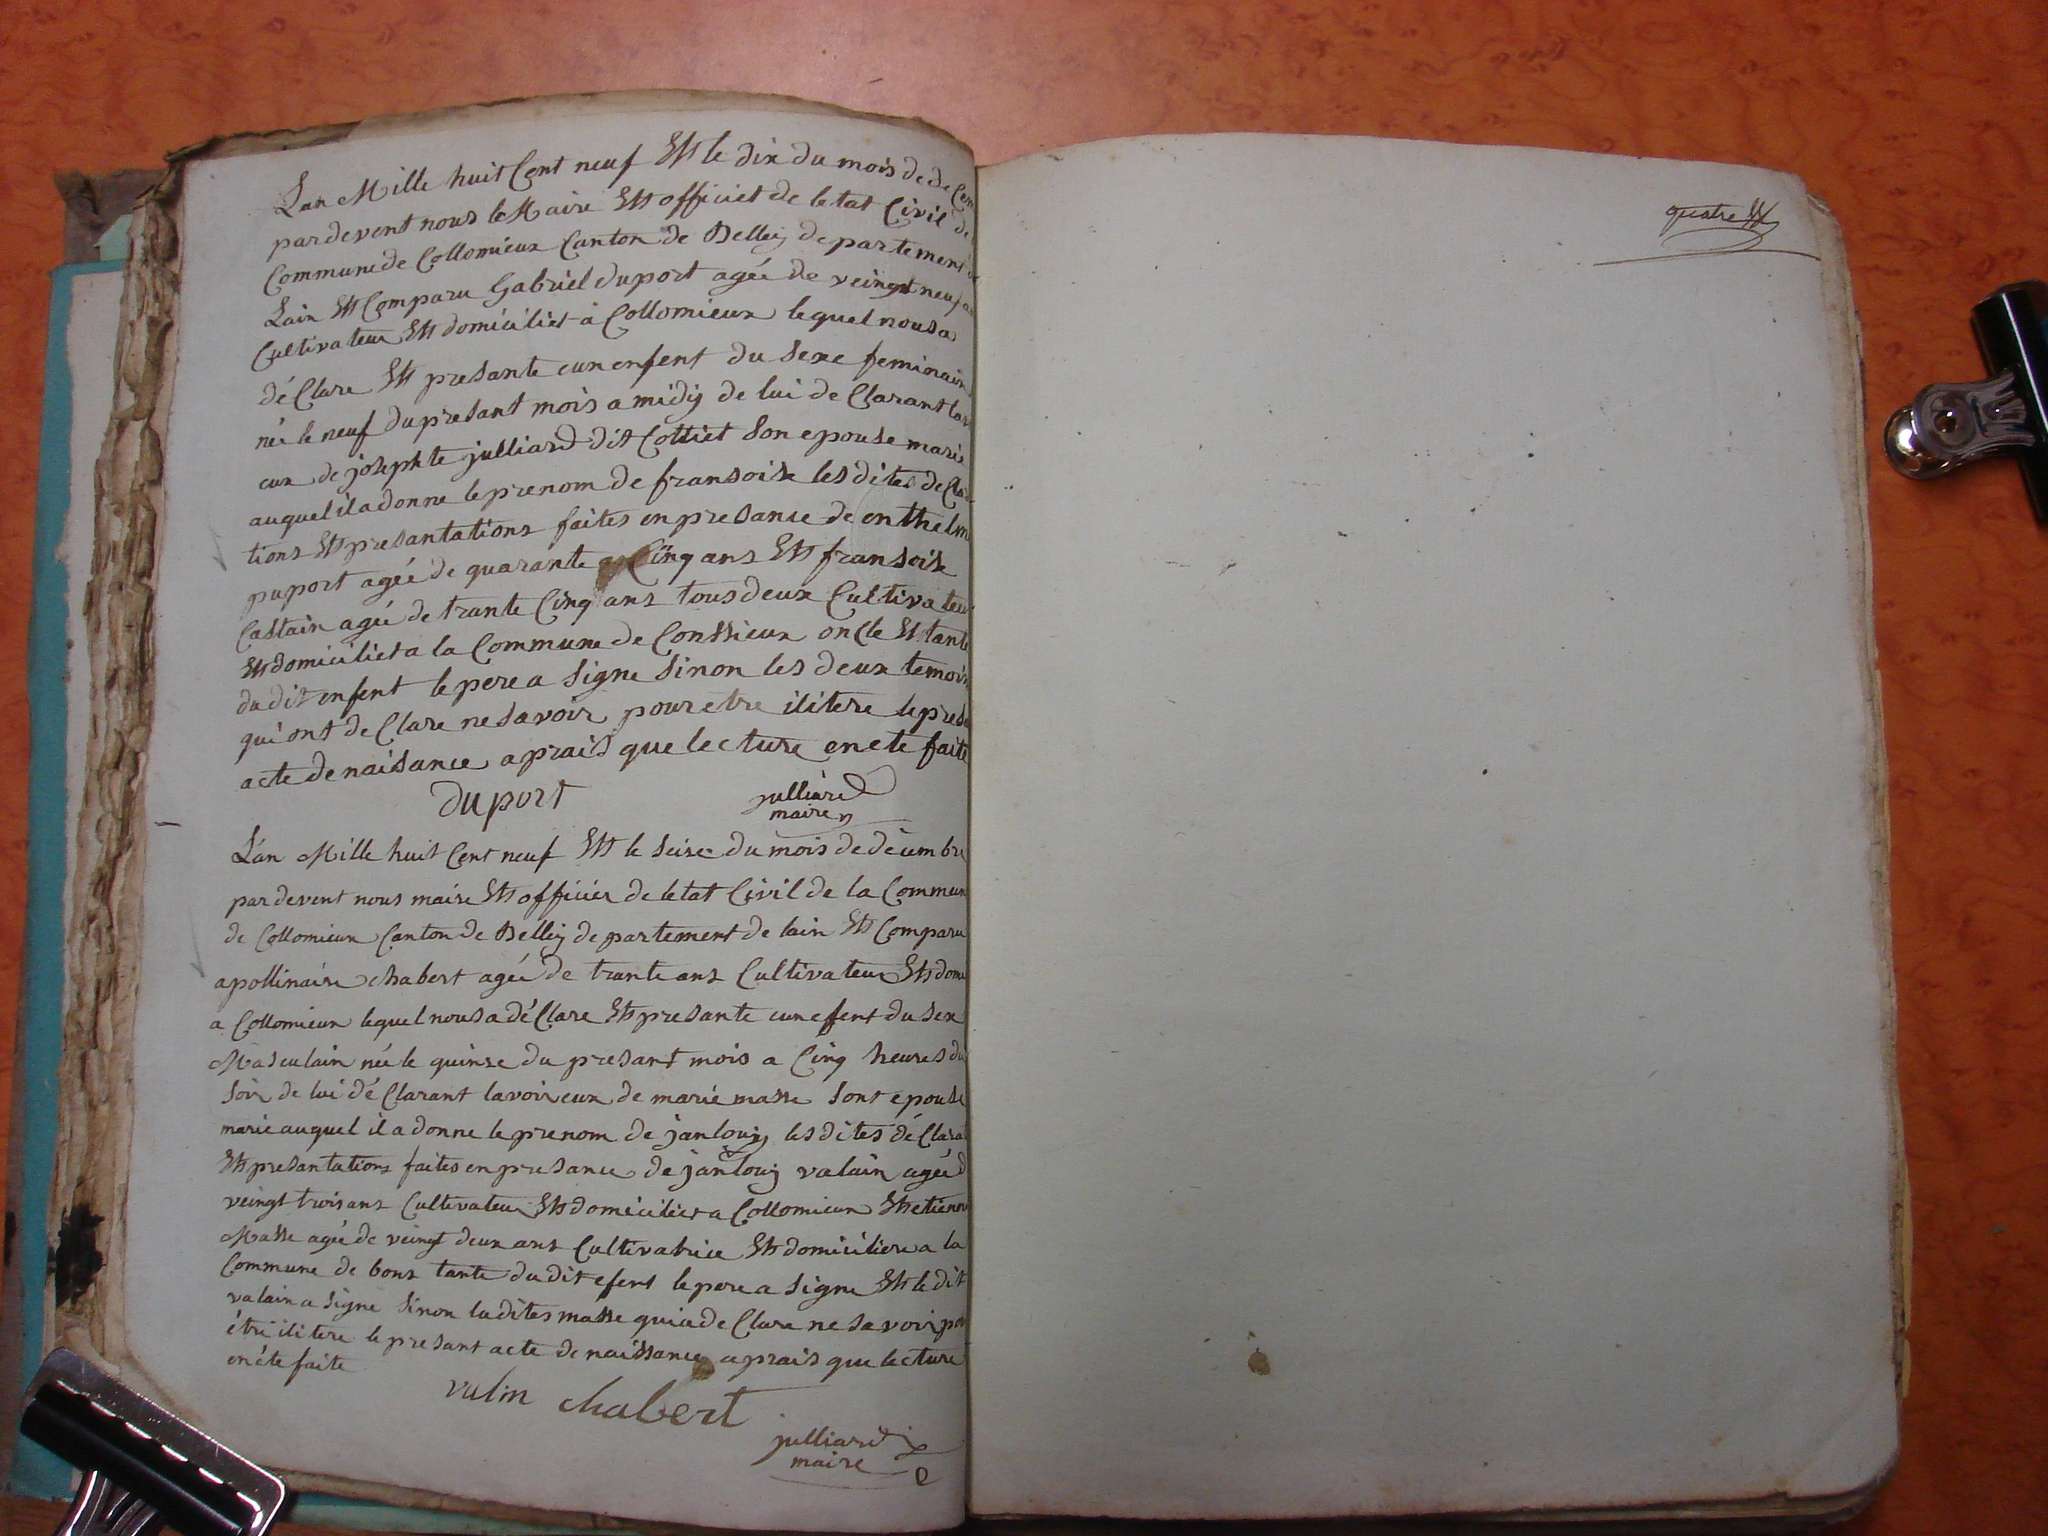 Lan Mille huit Cent neuf Et le dix du mois de de Cem
par devent nous le Maire Et officiet de le tat Civil de
Commune de Collomieux Canton de Belley de partement de
Lain Et Comparu Gabriel duport agée de veingt neuf an
Cultivateur Et domiciliet à Collomieux lequel nous a
déClare Et presante eun enfent du Sexe feminain
née le neuf du presant mois a midy de lui de Clarant lavoir
eux de josephte julliard dit Colliet Son epouse marie
auquel il a donne le prenom de fransoise les dites de Clara
tions Et presantations faites en presance de enthelm
puport agée de quarante Cinq ans Et fransoise
Castain agée de trante Cinq ans tous deux Cultivateu
Et domiciliet a la Commune de Conssieux oncle Et tante
du dit enfent le pere a Signe Sinon les deux temoin
qui ont de Clare ne savoir pour etre ilitere le presa
acte de naisance aprais que lecture en ete faite
duport julliard
maire
L'an Mille huit Cent neuf Et le Seize du mois de décembre
par devent nous maire Et officier de le tat Civil de la Commun
de Collomieux Canton de Belley de partement de lain Et Comparu
apollinaire chabert agée de trante ans Cultivateur Et domi
a Collomieux lequel nous a déClare Et presante eun efent du Sex
Masculain née le quinse du presant mois a Cinq heures du
Soir de lui déClarant lavoir eux de marie masse Sont epouse
marie auquel il a donne le prenom de janlouy les dites déClara
Et presantations faites en presance de janlouy valain agée d
veingt trois ans Cultivateur Et domiciliet a Collomieux Et etienn
Masse agée de veingt deux ans Cultivatrice Et domiciliere a la
Commune de bons tante du dit efent le pere a Signe Et le dit
valain a Signe Sinon la dites masse qui a de Clare ne savoir pou
étre ilitere le presant acte de naissance aprais que lecture
en éte faite
valin chabert
julliard
maire
quatre